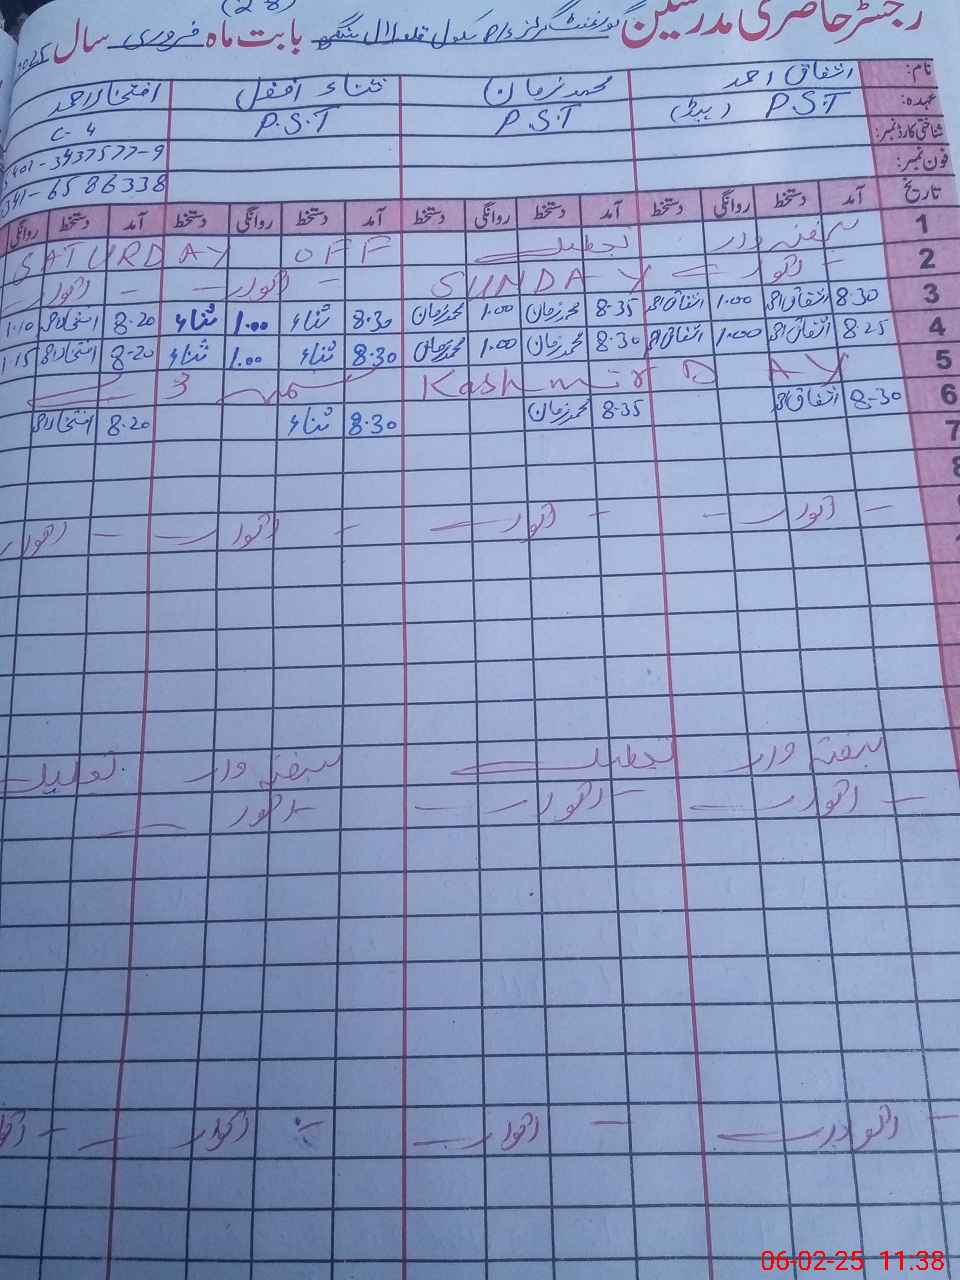 (28)
رجسٹر حاضری مدرسین گورنمنٹ گرلز P/S سکول قلعہ لال سنگھ بابت ماہ فروری سال 2025
نام: اشفاق احمد محمد زمان ثناء افضل افتخار احمد
عہدہ: P.S.T (ہیڈ) P.S.T P.S.T C-4
شناختی کارڈ نمبر: 401-3437577-9
فون نمبر: 341-6586338
تاریخ آمد دستخط روانگی دستخط آمد دستخط روانگی دستخط آمد دستخط روانگی دستخط آمد دستخط روانگی
1 ہفتہ وار تعطیل SATURDAY OFF
2 - اتوار - SUNDAY - اتوار - - اتوار -
3 8.30 اشفاق احمد 1.00 اشفاق احمد 8.35 محمد زمان 1.00 محمد زمان 8.30 ثناء 1.00 ثناء 8.20 افتخار احمد 1.10
4 8.25 اشفاق احمد 1.00 اشفاق احمد 8.30 محمد زمان 1.00 محمد زمان 8.30 ثناء 1.00 ثناء 8-20 افتخار احمد 1.15
5 Kashmir DAY کشمیر ڈے
6 8-30 اشفاق احمد 8.35 محمد زمان 8.30 ثناء 8.20 افتخار احمد
7
8
- اتوار - - اتوار - - اتوار - - اتوار
ہفتہ وار تعطیل ہفتہ وار تعطیل
- اتوار - - اتوار - - اتوار -
- اتوار - - اتوار - - اتوار - - اتوار
06-02-25 11:38